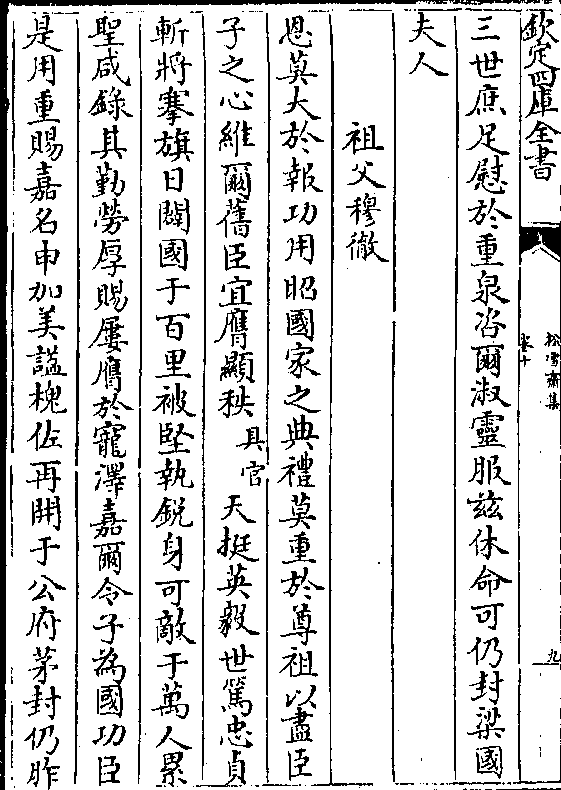 欽定四庫全書
松雪齋集
卷十
九
三世庶足慰於重泉咨爾淑靈服兹休命可仍封梁國
夫人
祖父穆徹
恩莫大於報功用昭國家之典禮莫重於尊祖以盡臣
子之心維爾舊臣宜膺顯秩具官天挺英毅世篤忠貞
斬將搴旗日闢國于百里被堅執銳身可敵于萬人累
聖咸錄其勤勞厚賜屢膺於寵澤嘉爾令子為國功臣
是用重賜嘉名申加美諡槐佐再開于公府茅封仍胙